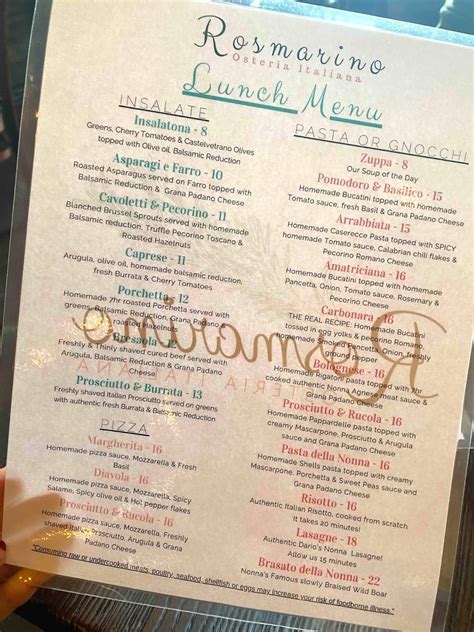 Rosmarino
Osteria Italiana
Lunch Menu
INSALATE
Insalatona - 8
Greens, Cherry Tomatoes & Castelvetrano Olives
topped with Olive oil, Balsamic Reduction
Asparagi e Farro - 10
Roasted Asparagus served on Farro topped with
Balsamic Reduction & Grana Padano Cheese
Cavoletti & Pecorino - 11
Blanched Brussel Sprouts served with homemade
Balsamic reduction, Truffle Pecorino Toscano &
Roasted Hazelnuts
Caprese - 11
Arugula, olive oil, homemade balsamic reduction,
fresh Burrata & Cherry Tomatoes
Porchetta - 12
Homemade 7hr roasted Porchetta served on
greens with Balsamic reduction & Toasted
Hazelnuts
Bresaola - 12
Freshly & Thinly shaved cured beef served with
Arugula, Balsamic Reduction & Grana Padano
Cheese
Prosciutto & Burrata - 13
Freshly shaved Italian Prosciutto served on greens
with authentic fresh Burrata & Balsamic Reduction
PIZZA
Margherita - 16
Homemade pizza sauce, Mozzarella & Fresh
Basil
Diavola - 16
Homemade pizza sauce, Mozzarella, Spicy
Salame, Spicy olive oil & Hot pepper flakes
Prosciutto & Rucola - 16
Homemade pizza sauce, Mozzarella, Freshly
shaved Italian Prosciutto, Arugula & Grana
Padano Cheese
PASTA OR GNOCCHI
Zuppa - 8
Our Soup of the Day
Pomodoro & Basilico - 15
Homemade Bucatini topped with homemade
Tomato sauce, fresh Basil & Grana Padano Cheese
Arrabbiata - 15
Homemade Caserecce Pasta topped with SPICY
homemade Tomato sauce, Calabrian chili flakes &
Pecorino Romano Cheese
Amatriciana - 16
Homemade Bucatini topped with homemade
Pancetta, Onion, Tomato sauce, Rosemary &
Pecorino Cheese
Carbonara - 16
THE REAL RECIPE: Homemade Bucatini
tossed in egg yolks & pecorino Romano
cheese, homemade pancetta, Onion, freshly
Bolognese - 16
Homemade Rigatoni pasta topped with 7hr
cooked authentic Nonna Agnese meat sauce &
grana Padano Cheese
Prosciutto & Rucola - 16
Homemade Pappardelle pasta topped with
creamy Mascarpone, Prosciutto & Arugula
sauce and Grana Padano Cheese
Pasta della Nonna - 16
Homemade Shells pasta topped with creamy
Mascarpone, Porchetta & Sweet Peas sauce and
Grana Padano Cheese
Risotto - 16
Authentic Italian Risotto, cooked from scratch
It takes 20 minutes!
Lasagne - 18
Authentic Dario's Nonna Lasagne!
Allow us 15 minutes
Brasato della Nonna - 22
Nonna's Famous slowly Braised Wild Boar
Rosmarino
OSTERIA ITALIANA
"Consuming raw or undercooked meats, poultry, seafood, shellfish or eggs may increase your risk of foodborne illness."